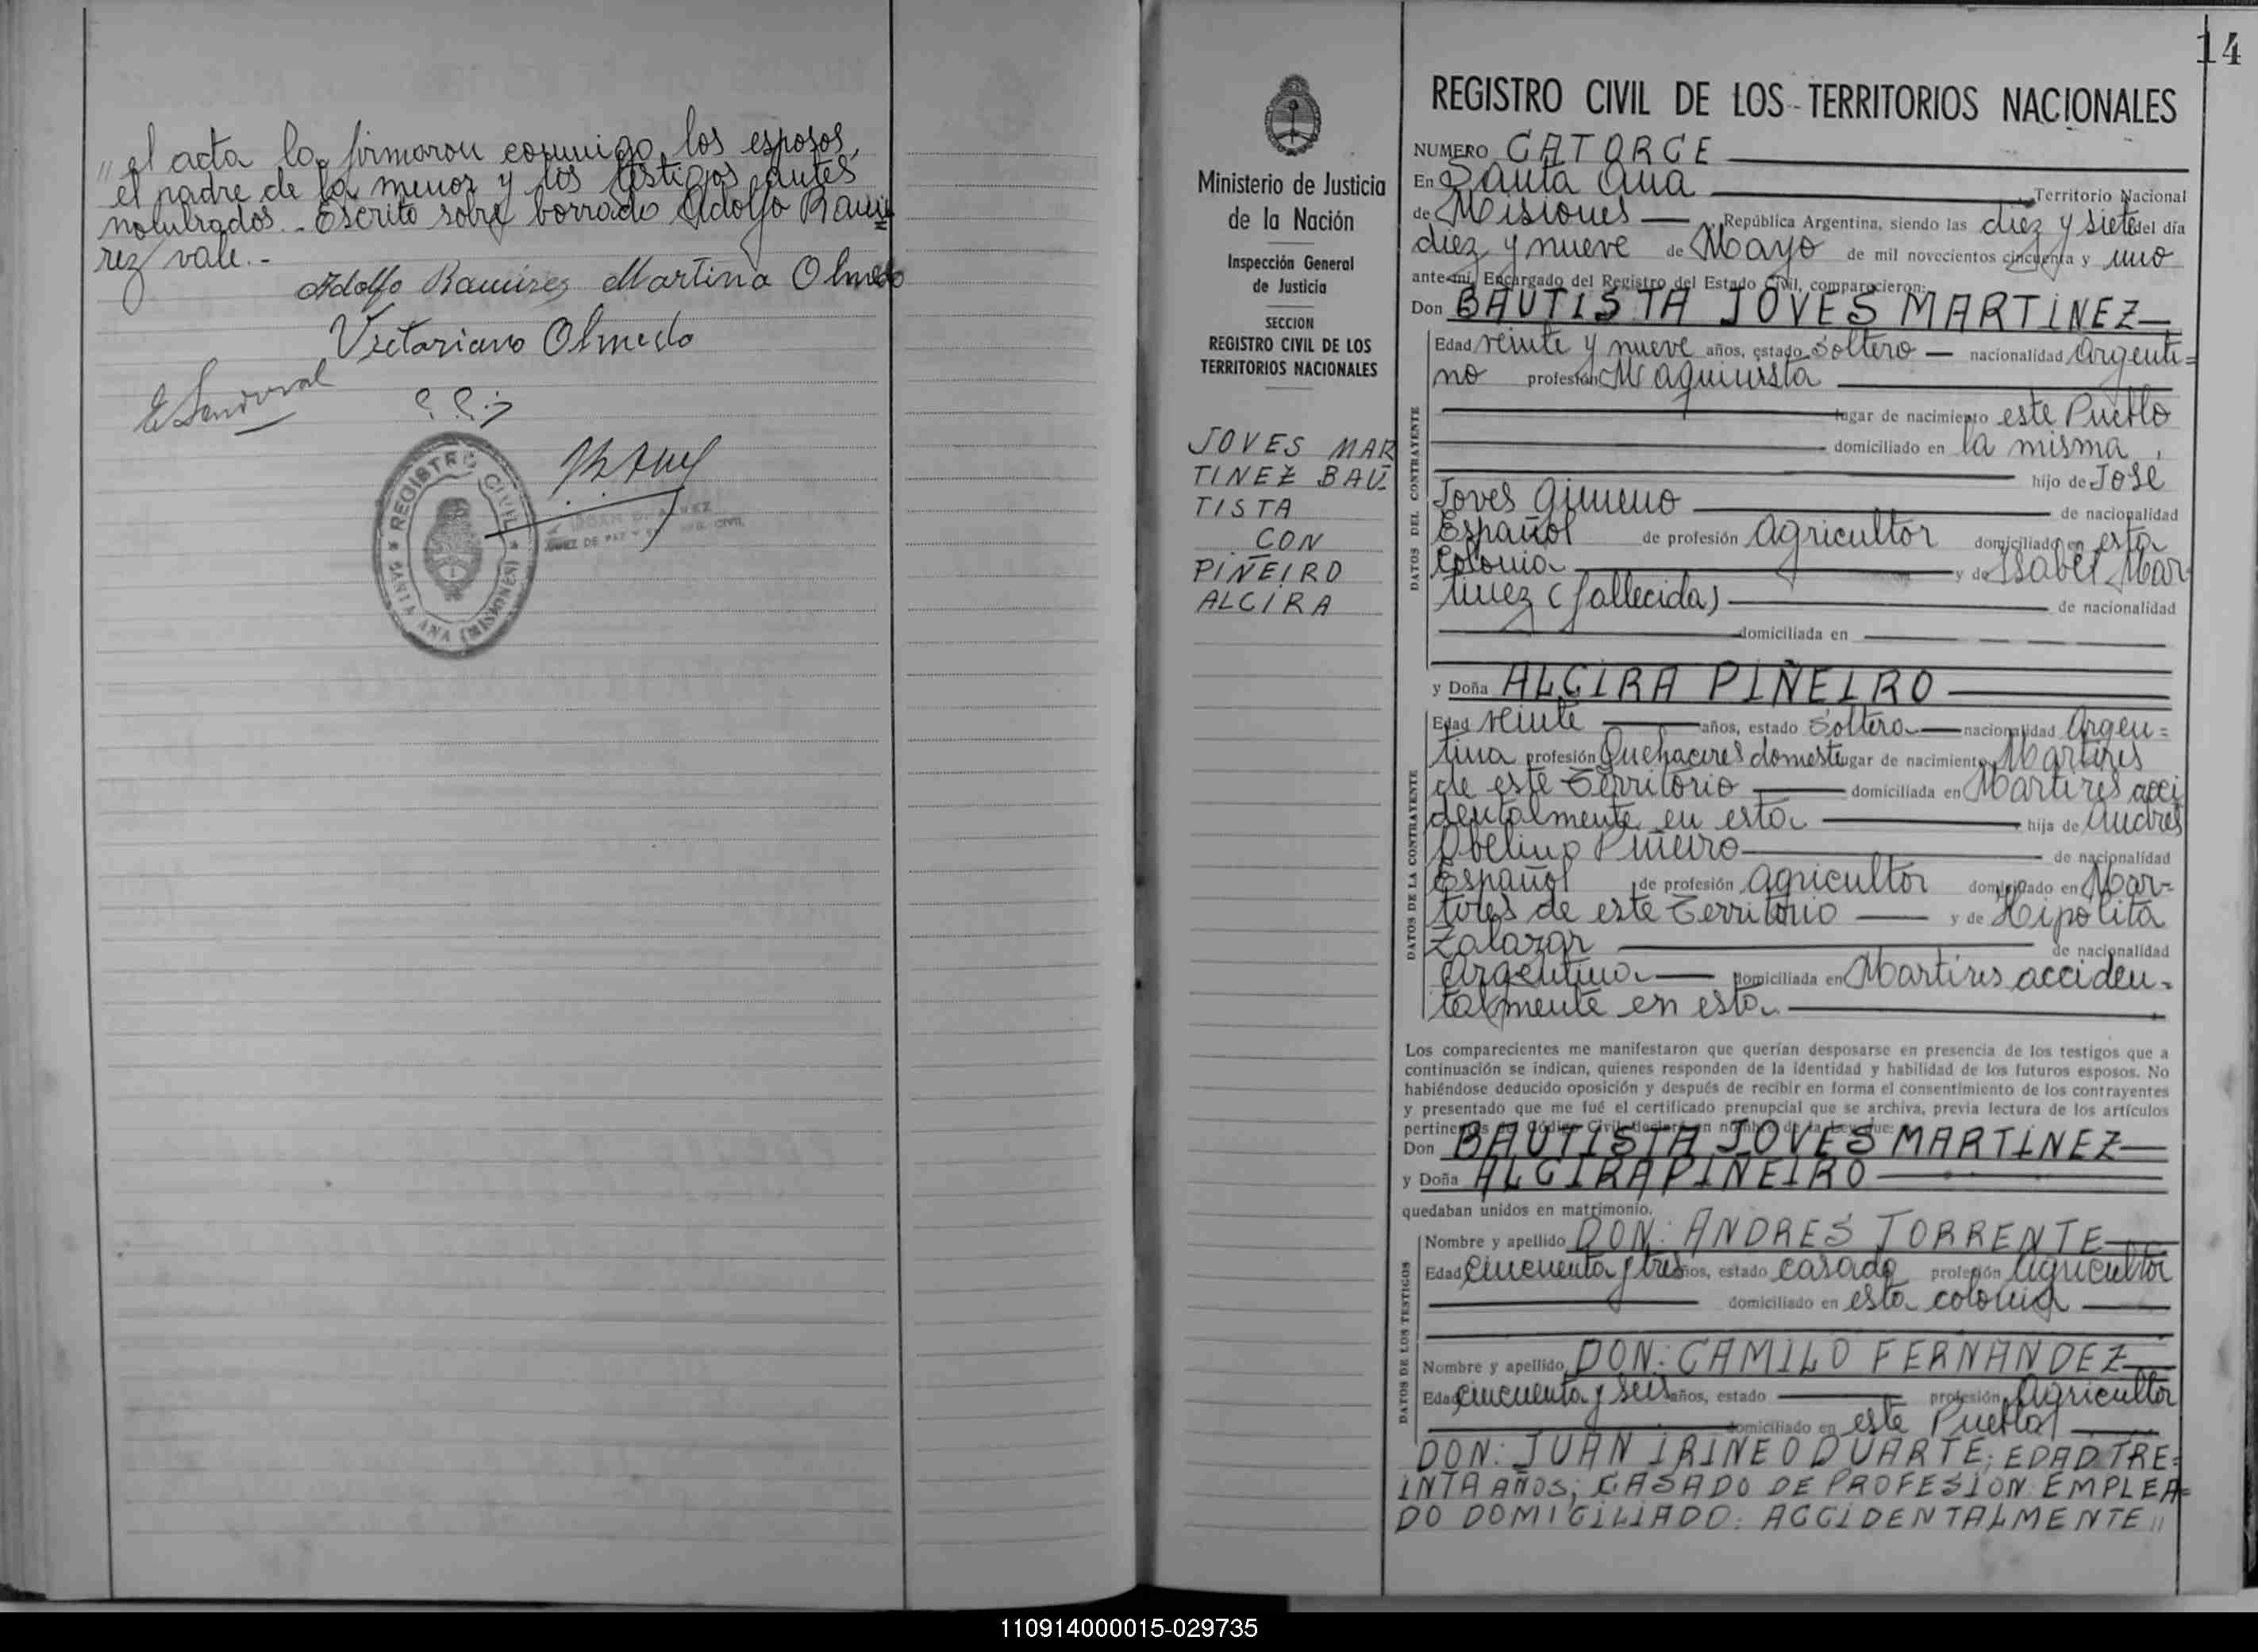 " el acta la firmaron conmigo los esposos,
el padre de la menor y los testigos antes
nombrados.- Escrito sobre borrado Adolfo Rami
rez vale.-
Adolfo Ramirez Martina Olmedo
Victoriano Olmedo
E Sandoval
REGISTRO CIVIL
SANTA ANA (MISIONES)
JUEZ DE PAZ
14
Ministerio de Justicia
de la Nación
Inspección General
de Justicia
SECCION
REGISTRO CIVIL DE LOS
TERRITORIOS NACIONALES
JOVES MAR
TINEZ BAU
TISTA
CON
PIÑEIRO
ALCIRA
REGISTRO CIVIL DE LOS TERRITORIOS NACIONALES
NUMERO CATORCE
En Santa Ana Territorio Nacional
de Misiones República Argentina, siendo las diez y siete del día
diez y nueve de Mayo de mil novecientos cincuenta y uno
ante mí, Encargado del Registro del Estado Civil, comparecieron:
Don BAUTISTA JOVES MARTINEZ
DATOS DEL CONTRAYENTE
Edad veinte y nueve años, estado Soltero nacionalidad Argenti=
no profesión Maquinista
lugar de nacimiento este Pueblo
domiciliado en la misma,
hijo de José
Joves Gimeno de nacionalidad
Español de profesión Agricultor domiciliado en esta
Colonia y de Isabel Mar
tinez (fallecida) de nacionalidad
domiciliada en
y Doña ALCIRA PIÑEIRO
DATOS DE LA CONTRAYENTE
Edad veinte años, estado Soltera nacionalidad Argen=
tina profesión Quehaceres domest lugar de nacimiento Martires
de este Territorio domiciliada en Martires acci
dentalmente en esta hija de Andres
Obelino Piñeiro de nacionalidad
Español de profesión Agricultor domiciliado en Mar-
tires de este Territorio y de Hipólita
Zalazar de nacionalidad
Argentina domiciliada en Martires acciden-
talmente en esta
Los comparecientes me manifestaron que querían desposarse en presencia de los testigos que a
continuación se indican, quienes responden de la identidad y habilidad de los futuros esposos. No
habiéndose deducido oposición y después de recibir en forma el consentimiento de los contrayentes
y presentado que me fué el certificado prenupcial que se archiva, previa lectura de los artículos
pertinentes del Código Civil, declaré en nombre de la Ley que:
Don BAUTISTA JOVES MARTINEZ
y Doña ALCIRA PIÑEIRO
quedaban unidos en matrimonio.
DATOS DE LOS TESTIGOS
Nombre y apellido DON: ANDRES TORRENTE
Edad Cincuenta y tres años, estado casado profesión Agricultor
domiciliado en esta colonia
Nombre y apellido DON: CAMILO FERNANDEZ
Edad cincuenta y seis años, estado profesión Agricultor
domiciliado en este Pueblo
DON: JUAN IRINEO DUARTE; EDAD TRE=
INTA AÑOS; CASADO DE PROFESION EMPLEA=
DO DOMICILIADO: ACCIDENTALMENTE "
110914000015-029735